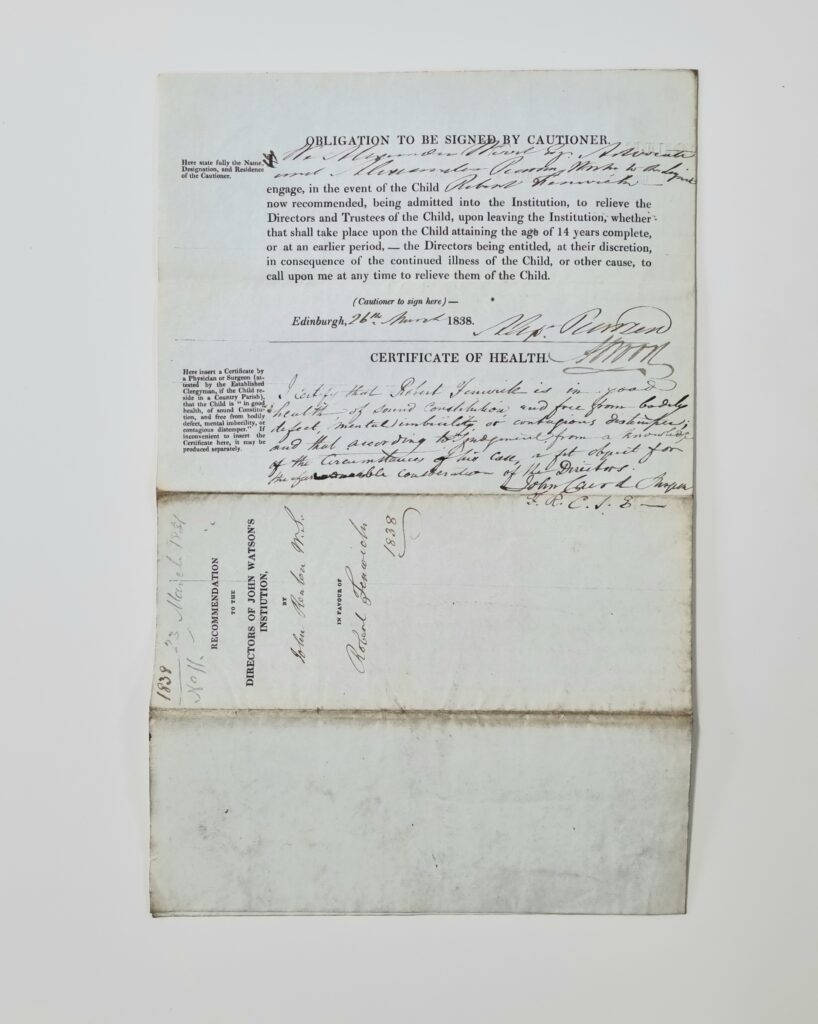 OBLIGATION TO BE SIGNED BY CAUTIONER
Here state fully the Name,
Designation, and Residence
of the Cautioner.
We Alexander Wood Esq. Advocate
and Alexander Pearson Writer to the Signet
engage, in the event of the Child Robert Fenwick
now recommended, being admitted into the Institution, to relieve the
Directors and Trustees of the Child, upon leaving the Institution, whether
that shall take place upon the Child attaining the age of 14 years complete,
or at an earlier period, — the Directors being entitled, at their discretion,
in consequence of the continued illness of the Child, or other cause, to
call upon me at any time to relieve them of the Child.
(Cautioner to sign here) —
Edinburgh, 26th March 1838. Alexr. Pearson
A Wood
CERTIFICATE OF HEALTH.
Here insert a Certificate by
a Physician or Surgeon (at-
tested by the Established
Clergyman, if the Child re-
side in a Country Parish),
that the Child is "in good
health, of sound Constitu-
tion, and free from bodily
defect, mental imbecility, or
contagious distemper." If
inconvenient to insert the
Certificate here, it may be
produced separately.
I certify that Robert Fenwick is in good
health of sound Constitution, and free from bodily
defect, mental imbecility, or contagious distemper;
and that according to judgment from a knowledge
of the Circumstances of his case, a fit object for
the favourable consideration of the Directors.
John Surgeon
F. R. C. S. E —
1838 23 March
No 11.
RECOMMENDATION
TO THE
DIRECTORS OF JOHN WATSON'S
INSTITUTION,
BY
John Renton W.S.
IN FAVOUR OF
Robert Fenwick
1838